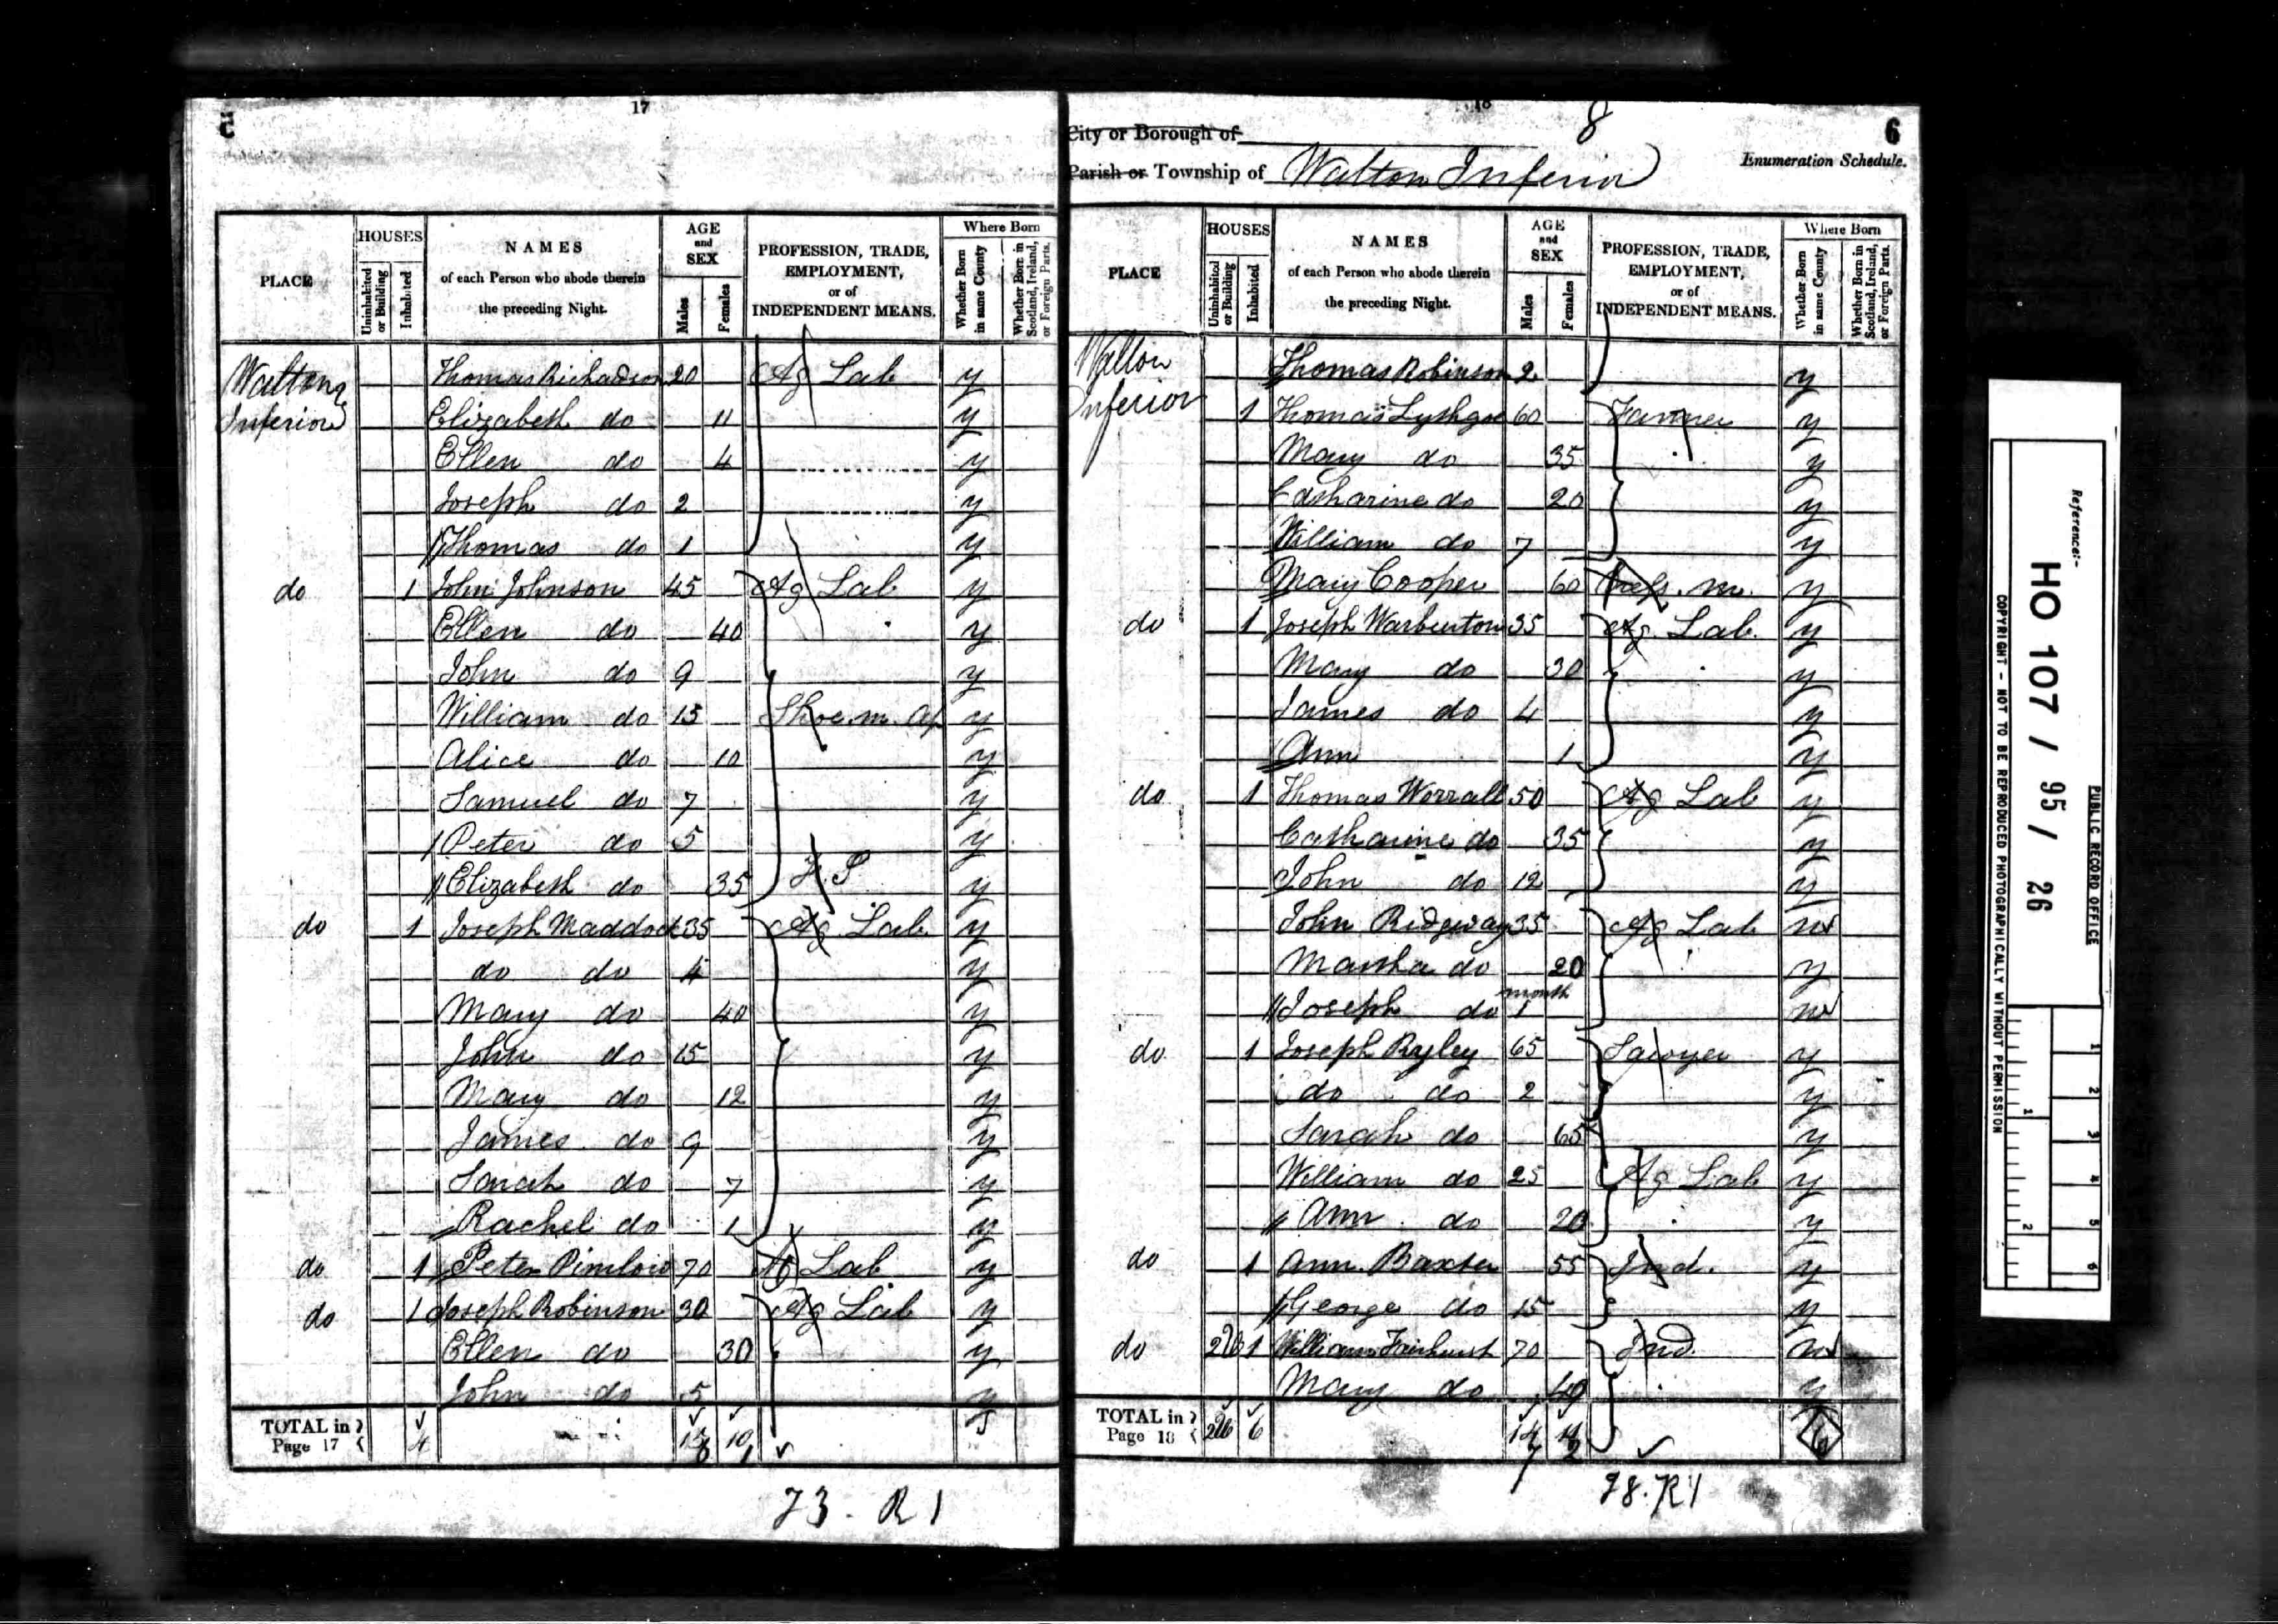 17
5
PLACE
HOUSES
Uninhabited or Building
Inhabited
NAMES
of each Person who abode therein
the preceding Night.
AGE
and
SEX
Males
Females
PROFESSION, TRADE,
EMPLOYMENT,
or of
INDEPENDENT MEANS.
Where Born
Whether Born in same County
Whether Born in Scotland, Ireland, or Foreign Parts.
Walton Thomas Richardson 20 Ag Lab y
Inferior Elizabeth do 11 y
Ellen do 4 y
Joseph do 2 y
Thomas do 1 y
do 1 John Johnson 45 Ag Lab y
Ellen do 40 y
John do 9 y
William do 15 Shoe.m. Ap y
Alice do 10 y
Samuel do 7 y
Peter do 5 y
Elizabeth do 35 F.S y
do 1 Joseph Maddock 35 Ag Lab y
do do 4 y
Mary do 40 y
John do 15 y
Mary do 12 y
James do 9 y
Sarah do 7 y
Rachel do 1 y
do 1 Peter 70 Ag Lab y
do 1 Joseph Robinson 30 Ag Lab y
Ellen do 30 y
John do 5 y
TOTAL in
Page 17 4 10
73. R1
18
8
6
City or Borough of
Parish or Township of Walton Inferior
Enumeration Schedule.
PLACE
HOUSES
Uninhabited or Building
Inhabited
NAMES
of each Person who abode therein
the preceding Night.
AGE
and
SEX
Males
Females
PROFESSION, TRADE,
EMPLOYMENT,
or of
INDEPENDENT MEANS.
Where Born
Whether Born in same County
Whether Born in Scotland, Ireland, or Foreign Parts.
Walton Thomas Robinson 2 y
Inferior 1 Thomas Lythgoe 60 Farmer y
Mary do 35 y
Catharine do 20 y
William do 7 y
Mary Cooper 60 y
do 1 Joseph Warburton 35 Ag. Lab. y
Mary do 30 y
James do 4 y
Ann 1 y
do 1 Thomas Worrall 50 Ag Lab y
Catharine do 35 y
John do 12 y
John Ridgway 35 Ag Lab n
Martha do 20 y
Joseph do 1 month n
do 1 Joseph Ryley 65 Sawyer y
do do 2 y
Sarah do 65 y
William do 25 Ag Lab y
Ann do 20 y
do 1 Ann Baxter 55 Ind. y
George do 15 y
do 1 William Fairhurst 70 Ind. n
Mary do 40 y
TOTAL in
Page 18 6 14
78. R1
Reference:-
HO 107 / 95 / 26
PUBLIC RECORD OFFICE
COPYRIGHT - NOT TO BE REPRODUCED PHOTOGRAPHICALLY WITHOUT PERMISSION
1 2 3 4 5 6
1 2